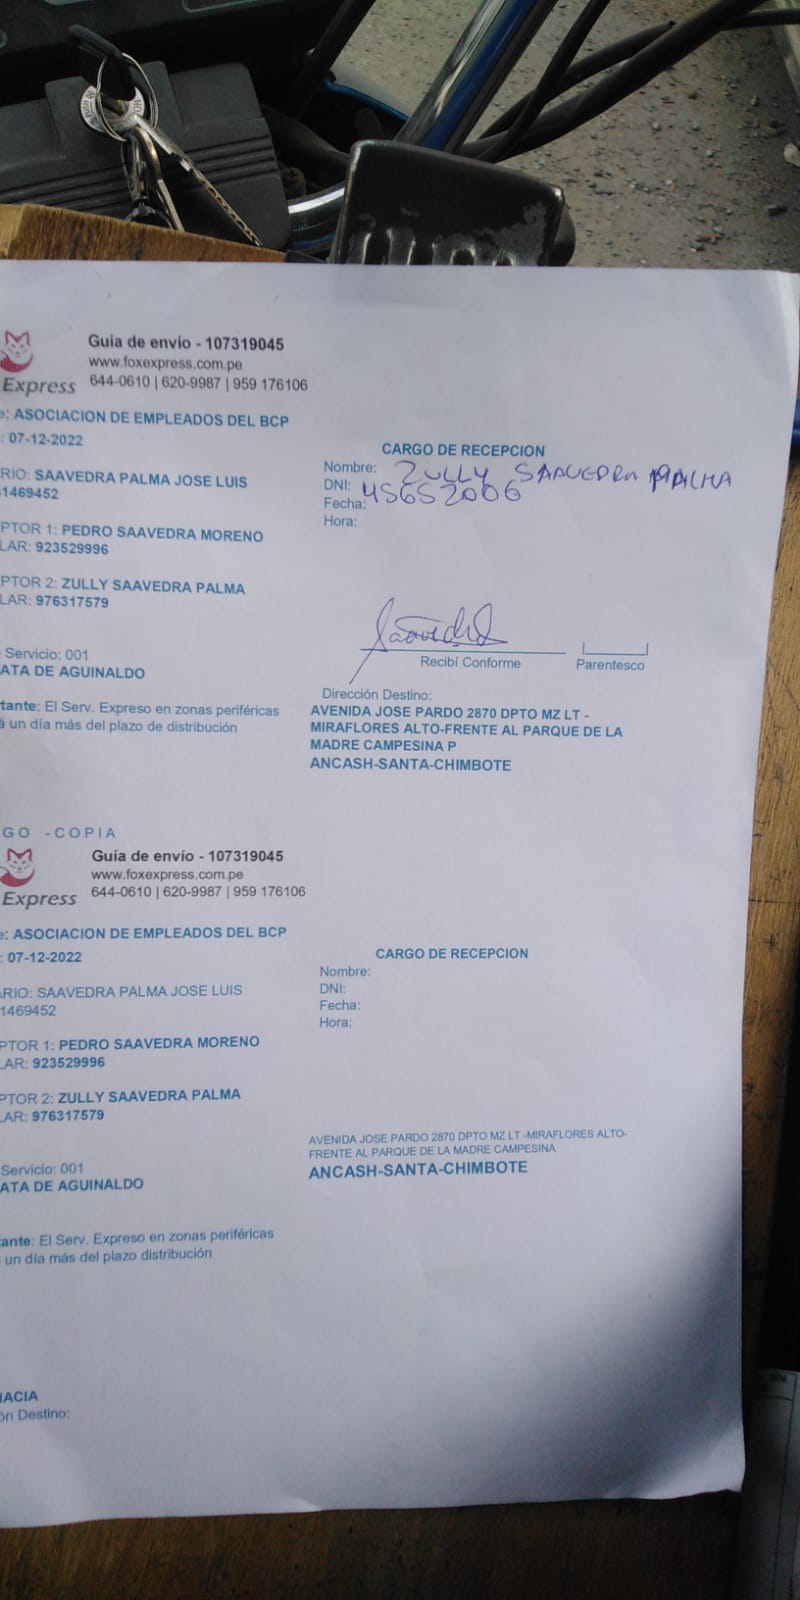 Guía de envío - 107319045
www.foxexpress.com.pe
Express 644-0610 | 620-9987 | 959 176106
e: ASOCIACION DE EMPLEADOS DEL BCP
: 07-12-2022
RIO: SAAVEDRA PALMA JOSE LUIS
1469452
PTOR 1: PEDRO SAAVEDRA MORENO
LAR: 923529996
PTOR 2: ZULLY SAAVEDRA PALMA
LAR: 976317579
Servicio: 001
ATA DE AGUINALDO
tante: El Serv. Expreso en zonas periféricas
á un día más del plazo de distribución
CARGO DE RECEPCION
Nombre: ZULLY SAAVEDRA PALMA
DNI: 45652006
Fecha:
Hora:
Saavedra
Recibí Conforme
Parentesco
Dirección Destino:
AVENIDA JOSE PARDO 2870 DPTO MZ LT -
MIRAFLORES ALTO-FRENTE AL PARQUE DE LA
MADRE CAMPESINA P
ANCASH-SANTA-CHIMBOTE
GO - COPIA
Guía de envío - 107319045
www.foxexpress.com.pe
Express 644-0610 | 620-9987 | 959 176106
e: ASOCIACION DE EMPLEADOS DEL BCP
: 07-12-2022
ARIO: SAAVEDRA PALMA JOSE LUIS
1469452
PTOR 1: PEDRO SAAVEDRA MORENO
LAR: 923529996
PTOR 2: ZULLY SAAVEDRA PALMA
LAR: 976317579
Servicio: 001
ATA DE AGUINALDO
tante: El Serv. Expreso en zonas periféricas
un día más del plazo distribución
CARGO DE RECEPCION
Nombre:
DNI:
Fecha:
Hora:
AVENIDA JOSE PARDO 2870 DPTO MZ LT -MIRAFLORES ALTO-
FRENTE AL PARQUE DE LA MADRE CAMPESINA
ANCASH-SANTA-CHIMBOTE
IACIA
ón Destino: